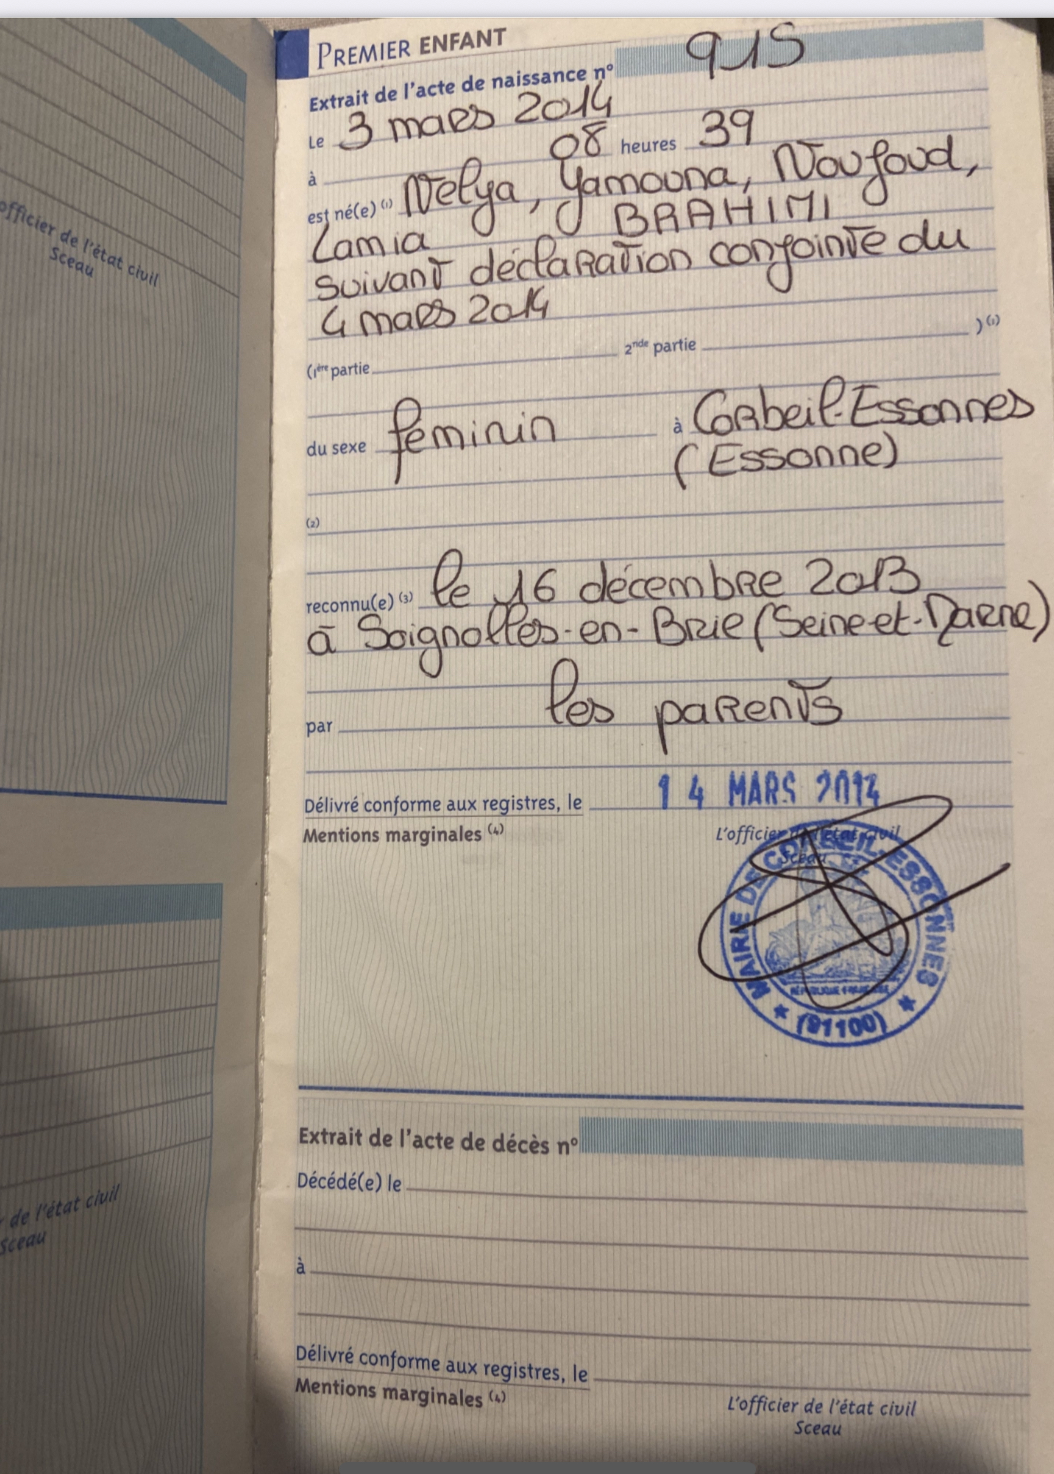 officier de l'état civil
Sceau
de l'état civil
Sceau
PREMIER ENFANT
Extrait de l'acte de naissance n° 915
Le 3 mars 2014
à 08 heures 39
est né(e) (1) Nelya, Yamouna, Noufoud,
Lamia BRAHIMI
suivant déclaration conjointe du
4 mars 2014
(1ère partie 2nde partie ) (1)
du sexe féminin à Corbeil-Essonnes
(Essonne)
(2)
reconnu(e) (3) le 16 décembre 2013
à Soignolles-en-Brie (Seine-et-Marne)
par les parents
Délivré conforme aux registres, le 14 MARS 2014
Mentions marginales (4)
L'officier de l'état civil
Sceau
MAIRIE DE CORBEIL-ESSONNES
RÉPUBLIQUE FRANÇAISE
* (91100) *
Extrait de l'acte de décès n°
Décédé(e) le
à
Délivré conforme aux registres, le
Mentions marginales (4)
L'officier de l'état civil
Sceau